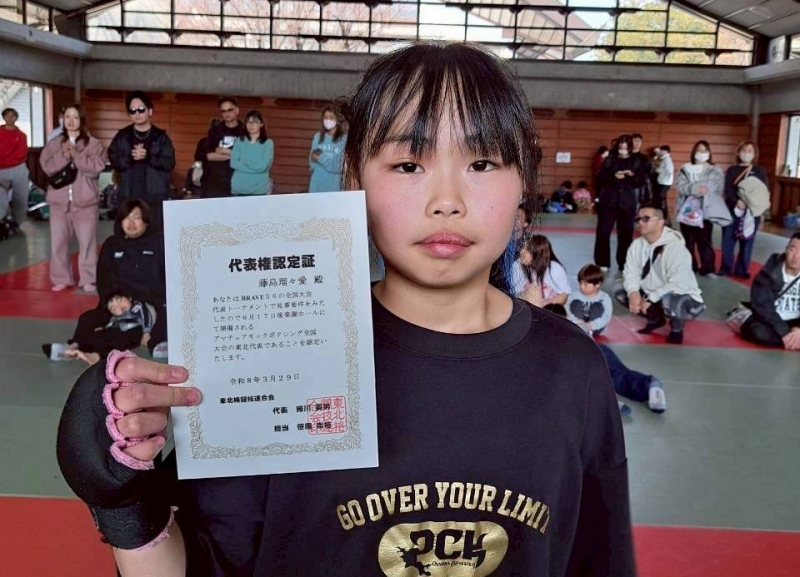 代表権認定証
藤島瑠々愛 殿
あなたは BRAVE56の全国大会
代表トーナメントで見事条件をみた
したので8月17日後楽園ホールに
て開催される
アマチュアキックボクシング全国
大会の東北代表であることを認定い
たします。
令和8年3月29日
東北格闘技連合会
代表
担当
GO OVER YOUR LIMIT
PCK